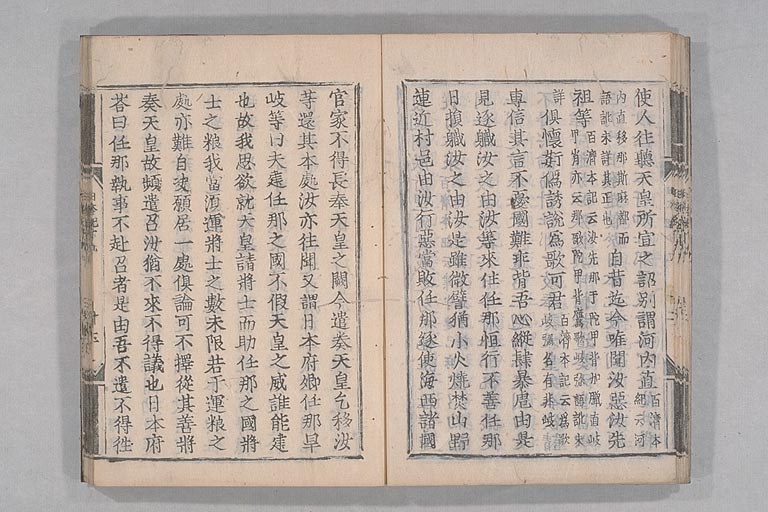 使人往聽天皇所宣之詔別謂河内直百濟本記云河
内直移那斯麻都而語訛未詳其正也自昔迄今唯聞汝惡汝先
祖等百濟本記云汝先那于陀甲背加獵直岐甲背亦云那歌陀甲背鷹歌岐弥語訛未
詳俱懷姧僞誘說爲歌可君百濟本記云爲歌岐弥名有非岐
專信其言不憂國難乖背吾心縱肆暴虐由是
見逐職汝之由汝等來住任那恒行不善任那
日損職汝之由汝是雖微譬猶小火燒焚山野
連近村邑由汝行惡當敗任那遂使海西諸國
官家不得長奉天皇之闕今遣奏天皇乞移汝
等還其本處汝亦往聞又謂日本府卿任那旱
岐等曰夫建任那之國不假天皇之威誰能建
也故我思欲就天皇請將士而助任那之國將
士之粮我當湏運將士之數未限若干運粮之
處亦難自決願居一處俱論可不擇從其善將
奏天皇故頻遣召汝猶不來不得議也日本府
荅曰任那執事不赴召者是由吾不遣不得徃